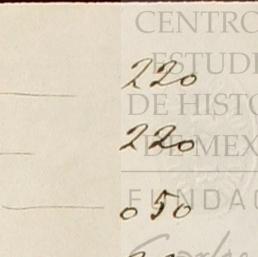 CENTRO
220
ESTUDI
DE HISTO
220
DE MEX
050
FUNDAC